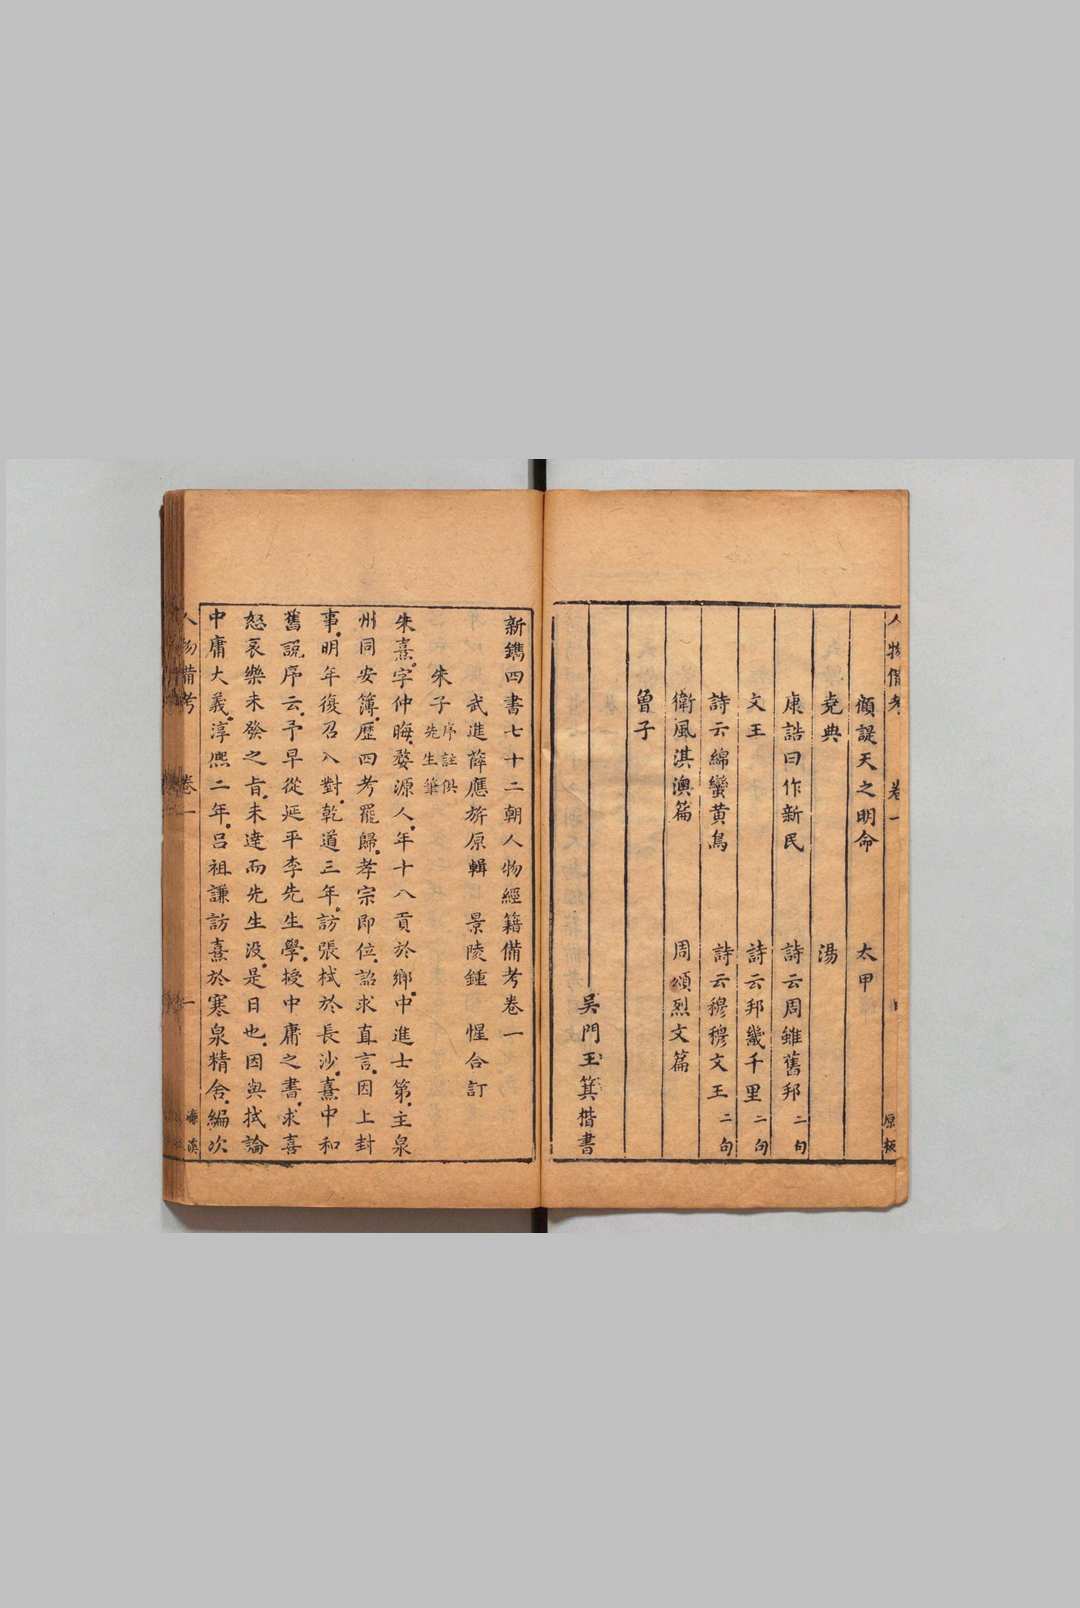 人物備考 卷一 原板
顧諟天之明命 太甲
堯典 湯
康誥曰作新民 詩云周雖舊邦二句
文王 詩云邦畿千里二句
詩云綿蠻黃鳥 詩云穆穆文王二句
衛風淇澳篇 周頌烈文篇
曾子
吳門王箕楷書
新鐫四書七十二朝人物經籍備考卷一
武進薛應旂原輯 景陵鍾惺合訂
朱子序註俱先生筆
朱熹字仲晦婺源人年十八貢於鄉中進士第主泉
州同安簿歷四考罷歸孝宗即位詔求直言因上封
事明年復召入對乾道三年訪張栻於長沙熹中和
舊說序云予早從延平李先生學授中庸之書求喜
怒哀樂未發之旨未達而先生沒是日也因與栻論
中庸大義淳熙二年呂祖謙訪熹於寒泉精舍編次
人物備考 卷一 一